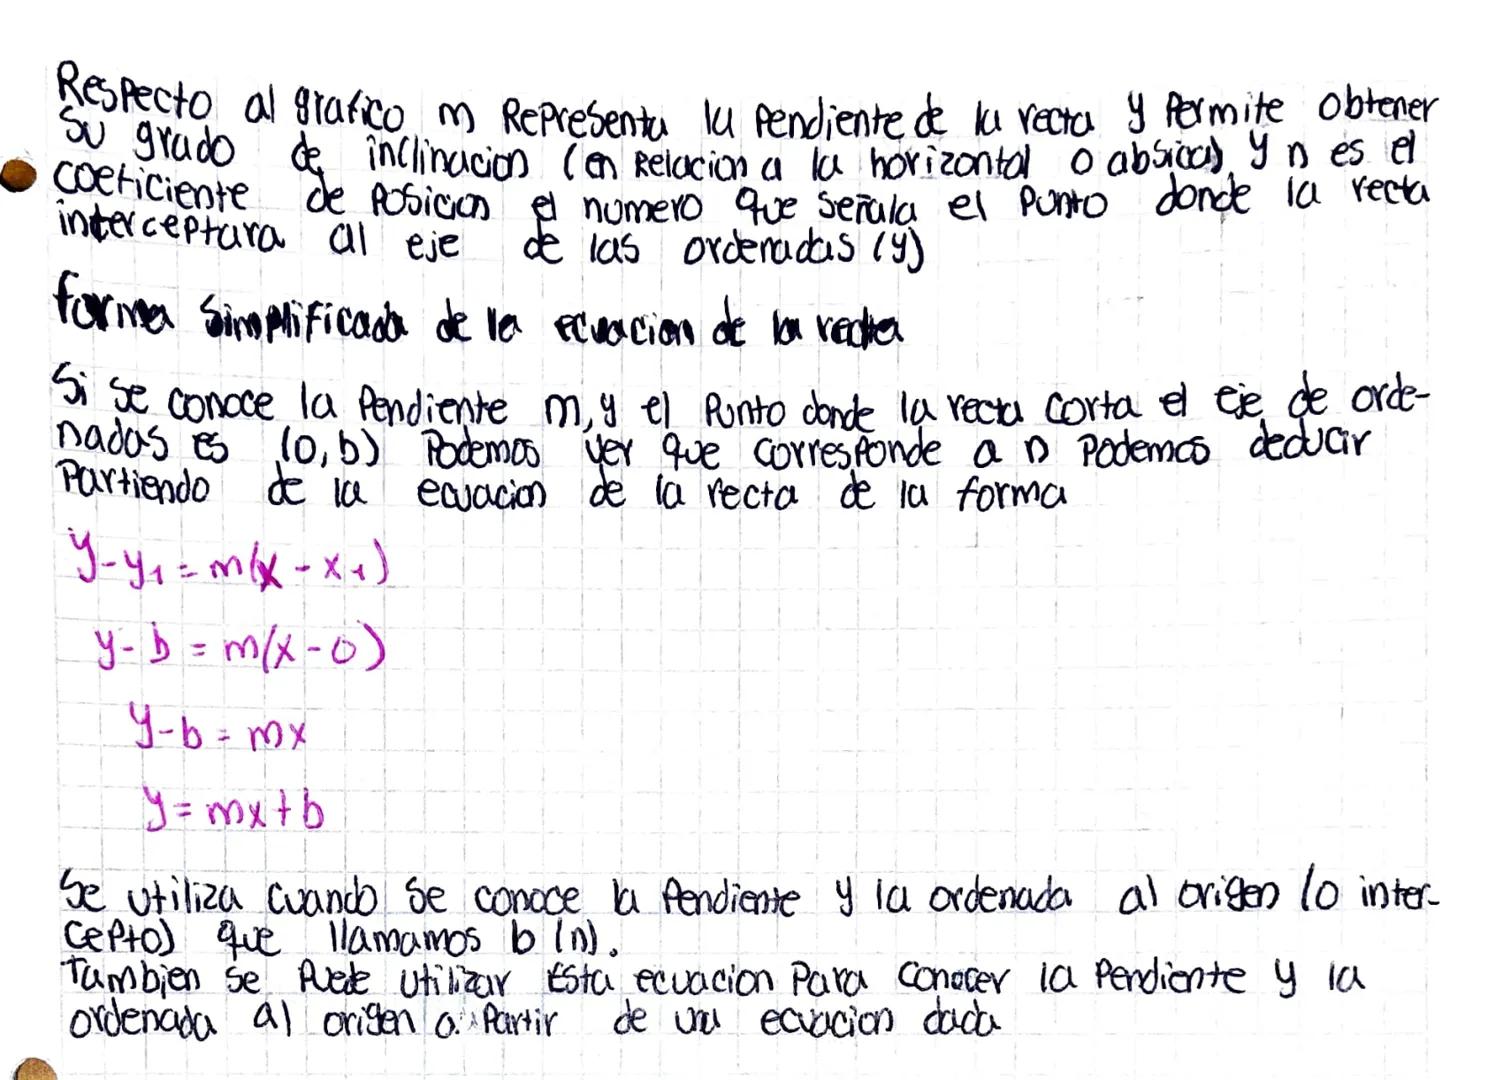 Respecto al grafico m Representa la Pendiente de la recta y Permite obtener
Su grado de inclinacion (en Relacion a la horizontal o absica) y n es el
coeficiente de Posicion el numero que Señala el Punto donde la recta
interceptara al eje de las ordenadas (y)
forma Simplificada de la ecuacion de la recta
Si se conoce la Pendiente m, y el Punto donde la recta corta el eje de orde-
nadas es (0,b) Podemos ver que corresponde a n Podemos deducir
Partiendo de la ecuacion de la recta de la forma
y-y1=m(x-x1)
y-b=m(x-0)
y-b=mx
y=mx+b
Se utiliza cuando Se conoce la Pendiente y la ordenada al origen (o inter-
cepto) que llamamos b (n).
Tambien se Puede utilizar Esta ecuacion Para Conocer la Pendiente y la
ordenada al origen a Partir de una ecuacion dada